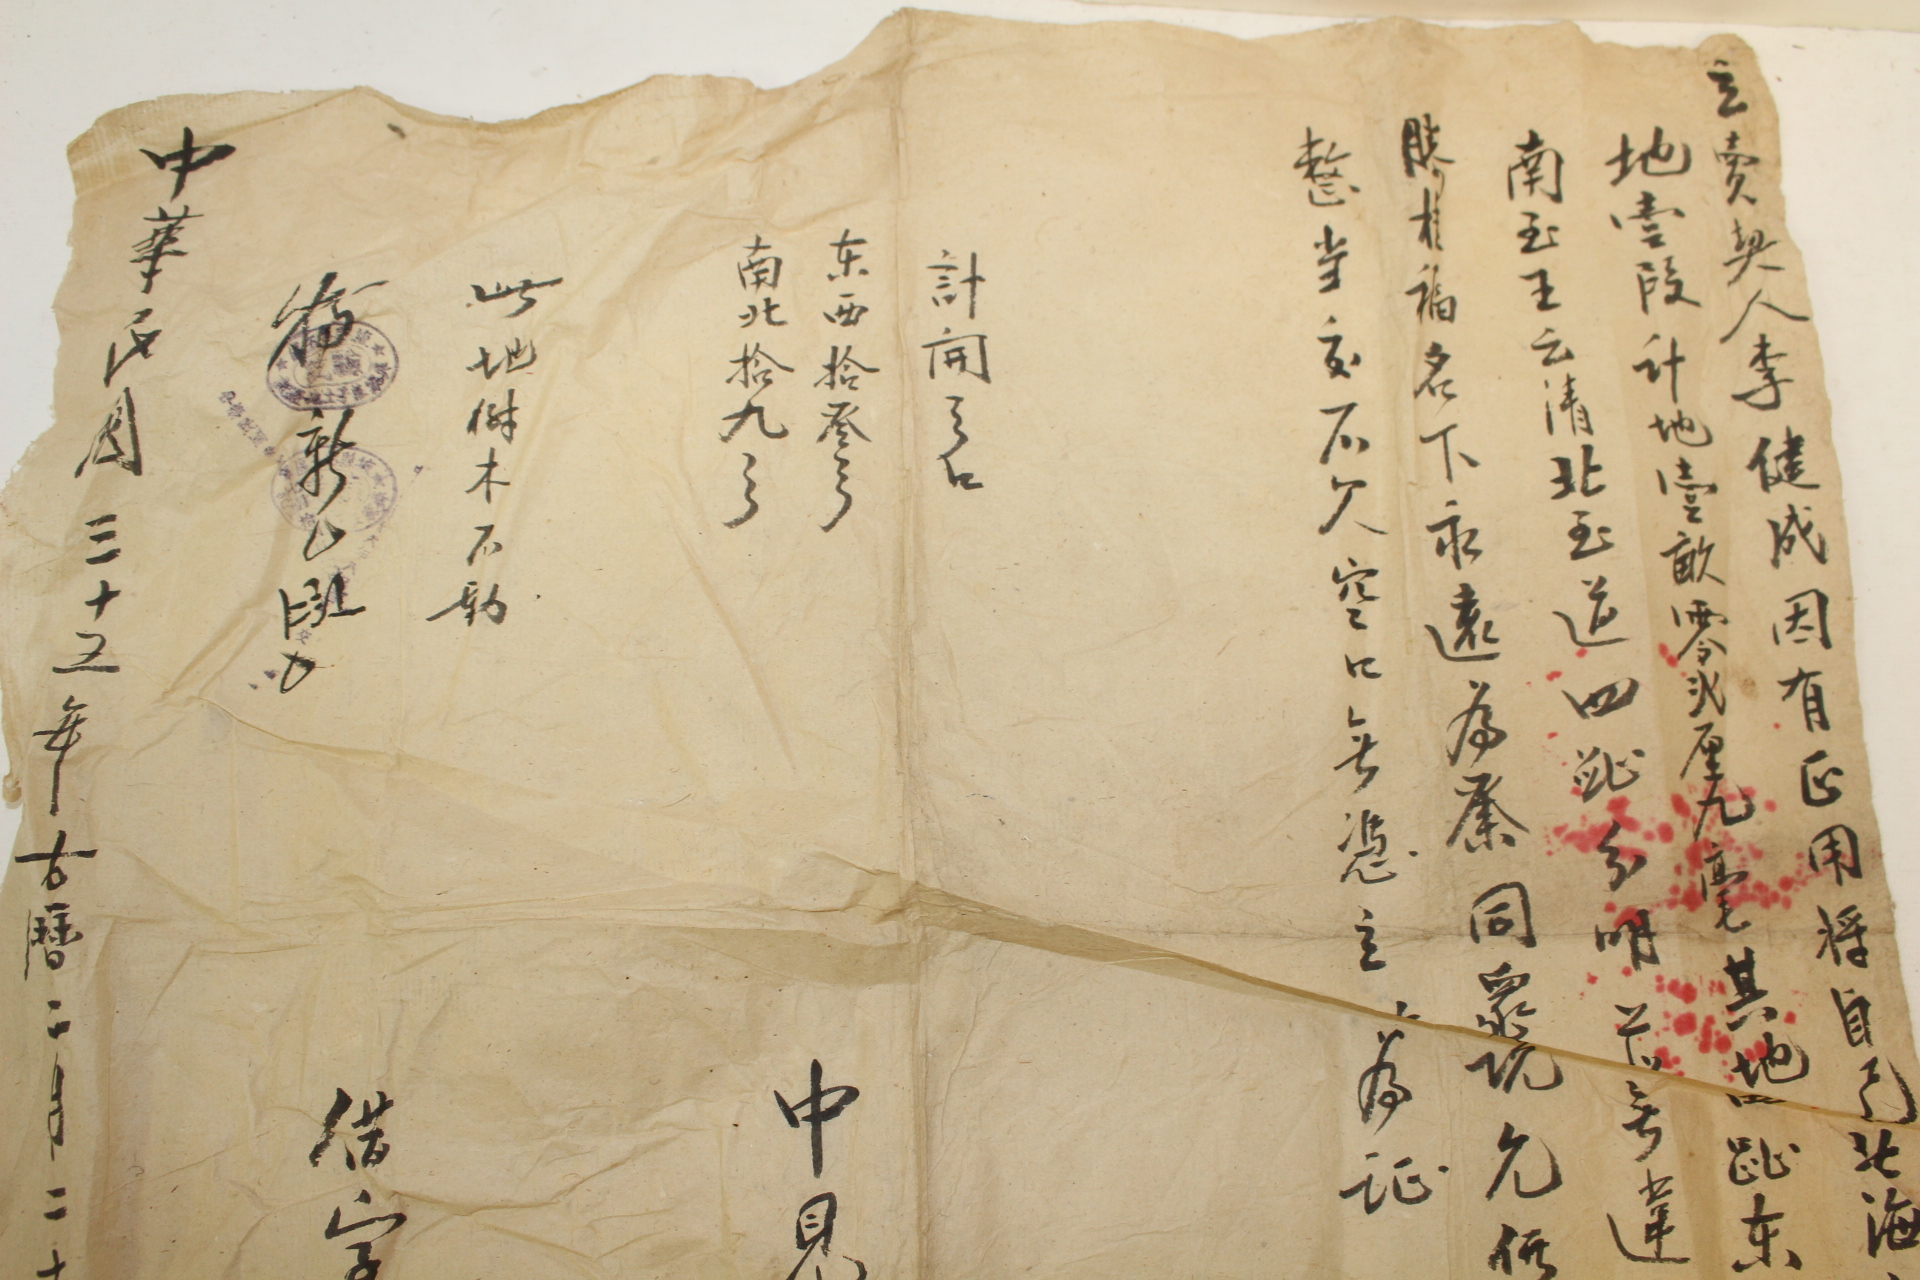 立賣契人李健成因有正用将自己北海
地壹段计地壹畝零弍厘九毫其地四趾东
南至王云清北至道四趾分明並無違
勝桂福名下永遠為業同衆说允
整當交不欠空口無憑立 為証
計開弓口
东西拾叁弓
南北拾九弓
此地樹木不動
中見
借字
中華民國三十五年古曆二月二十